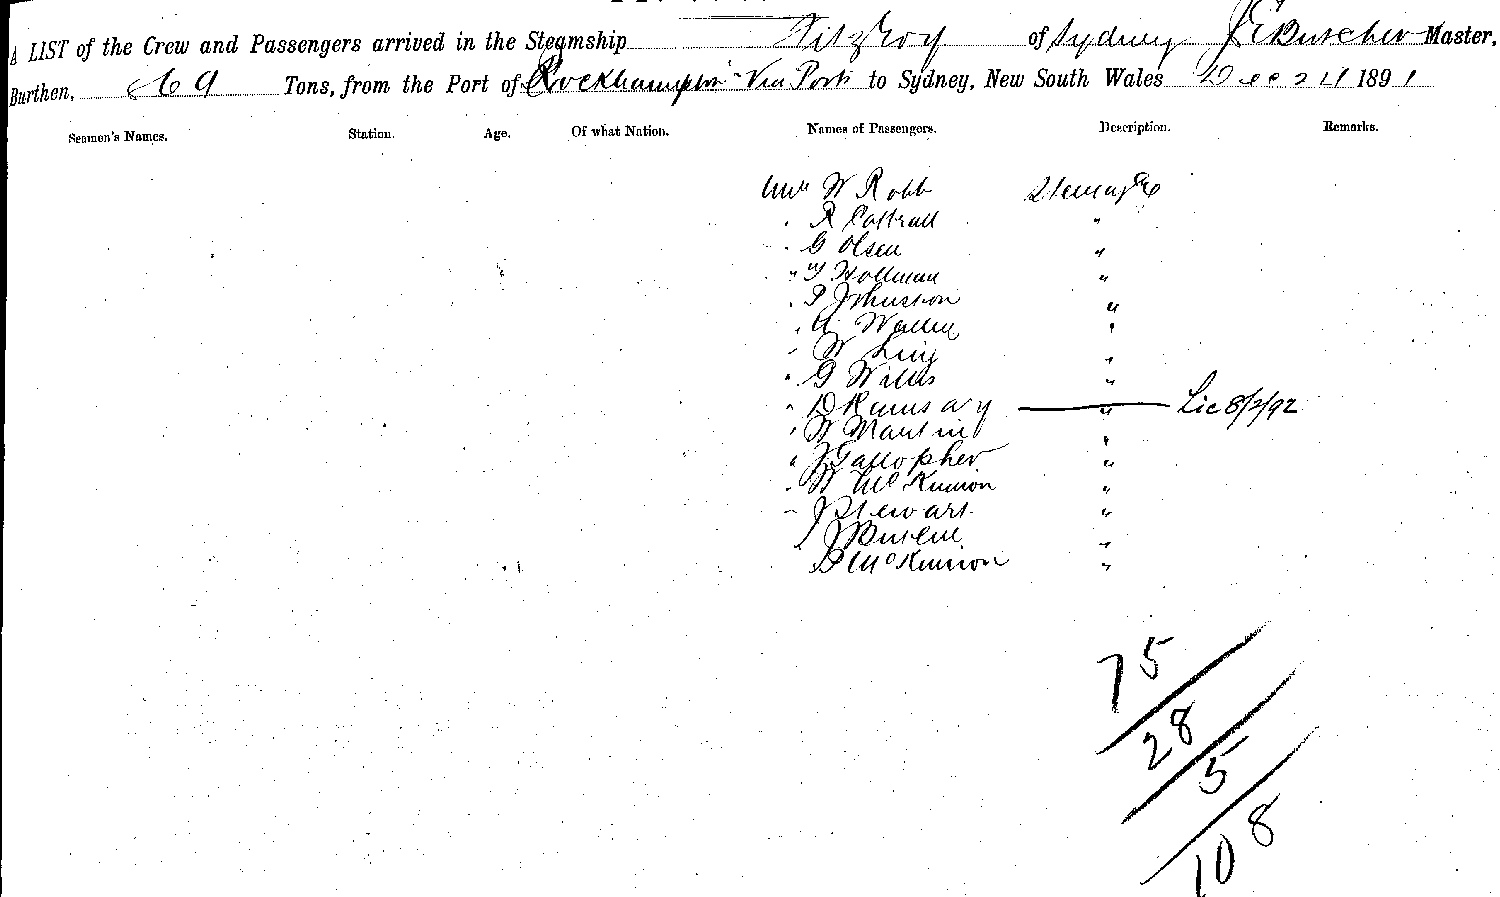 A LIST of the Crew and Passengers arrived in the Steamship Fitzroy of Sydney J E Butcher Master,
Burthen, 69 Tons, from the Port of Rockhampton Via Ports to Sydney, New South Wales Dec 24 1891
Seamen's Names. Station. Age. Of what Nation. Names of Passengers. Description. Remarks.
W Robb Steerage
" R Cattrall "
" G Olsen "
" Hollman "
" P Johnston "
" "
" W King "
" G Willis "
" D Ramsay " Lic 8/2/92
" W Martin "
" J Gallopher "
" W McKinnon "
" J Stewart "
" J "
D McKinnon "
75
28
5
108